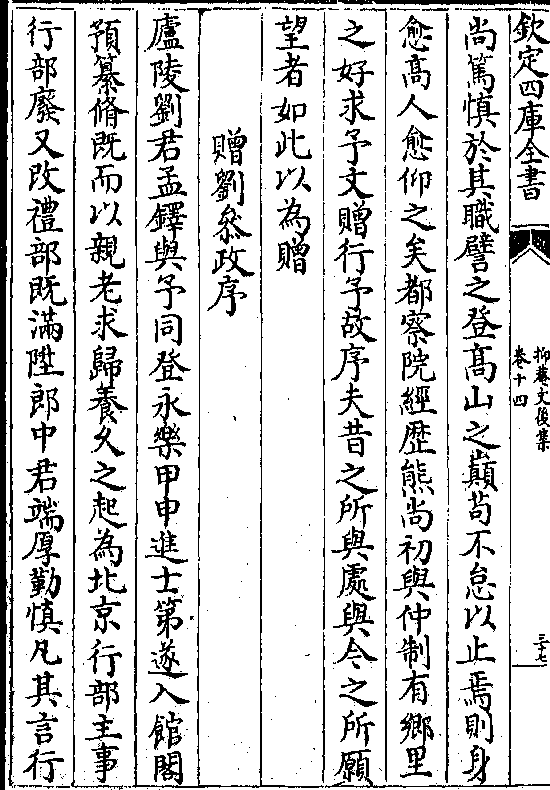 欽定四庫全書
抑菴文後集
卷十四
三十七
尚篤慎於其職譬之登髙山之巔茍不怠以止焉則身
愈髙人愈仰之矣都察院經歴熊尚初與仲制有鄉里
之好求予文贈行予故序夫昔之所與處與今之所願
望者如此以為贈
贈劉叅政序
廬陵劉君孟鐸與予同登永樂甲申進士第遂入館閣
預纂脩既而以親老求歸養久之起為北京行部主事
行部廢又改禮部既滿陞郎中君端厚勤慎凡其言行